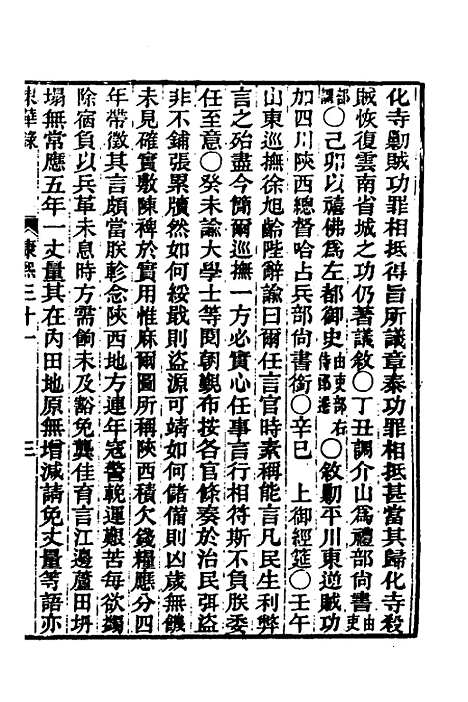 化寺勦賊功罪相抵得旨所議章泰功罪相抵甚當其歸化寺殺
賊恢復雲南省城之功仍著議敘〇丁丑調介山爲禮部尚書由吏
部調〇己卯以禧佛爲左都御史由吏部右侍郎遷〇敘勦平川東逆賊功
加四川陝西總督哈占兵部尚書銜〇辛巳 上御經筵〇壬午
山東巡撫徐旭齡陛辭諭曰爾任言官時素稱能言凡民生利弊
言之殆盡今簡爾巡撫一方必實心任事言行相符斯不負朕委
任至意〇癸未諭大學士等閱朝覲布按各官條奏於治民弭盜
非不鋪張累牘然如何綏戢則盜源可靖如何儲備則凶歲無饑
未見確實敷陳裨於實用惟麻爾圖所稱陝西積欠錢糧應分四
年帶徵其言頗當朕軫念陝西地方連年寇警輓運艱苦每欲蠲
除宿負以兵革未息時方需餉未及豁免龔佳育言江邊蘆田坍
塌無常應五年一丈量其在內田地原無增減請免丈量等語亦
東華錄 康熙三十一 三